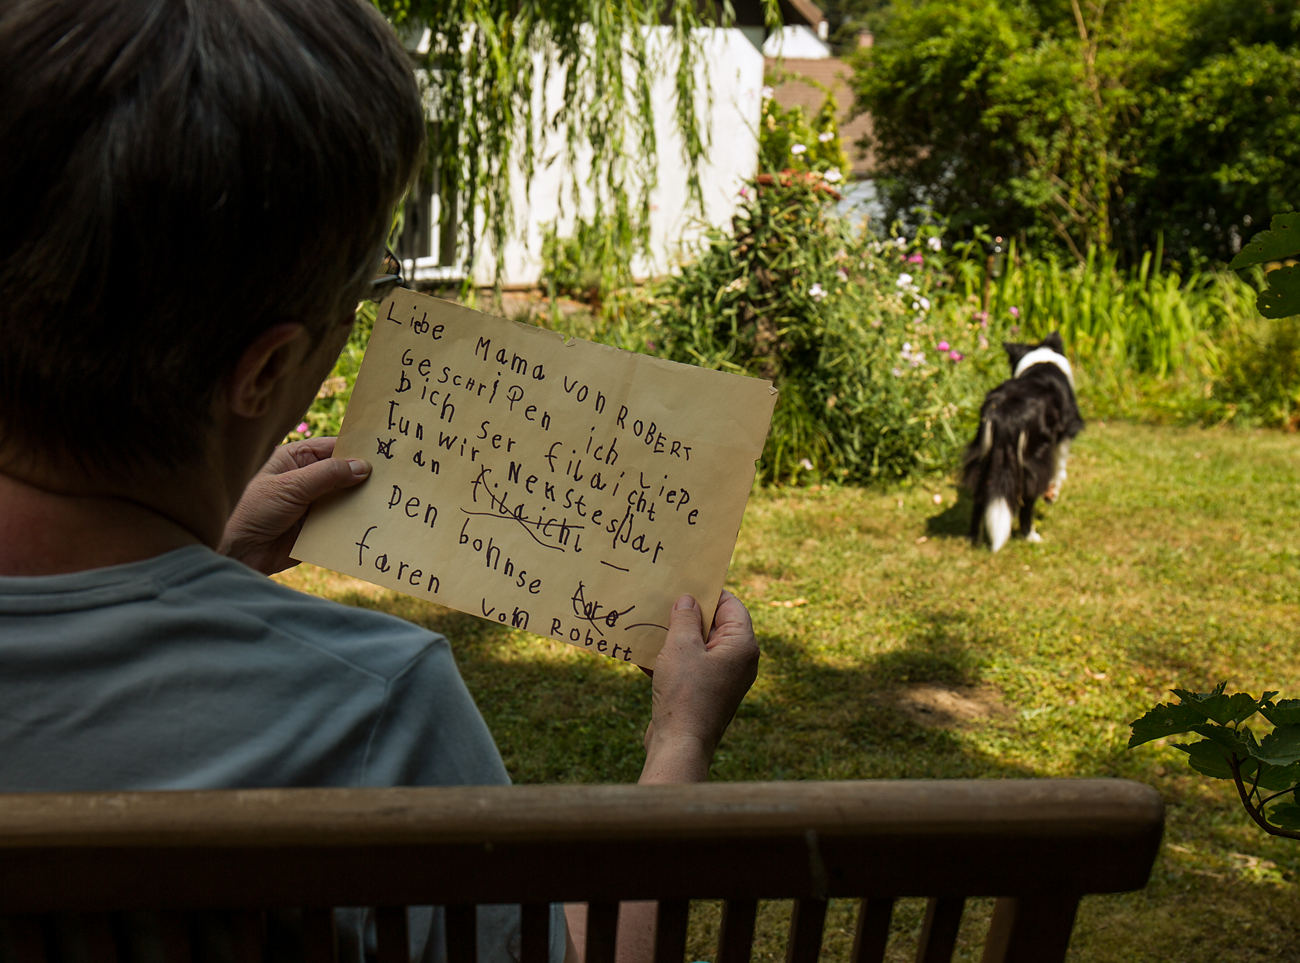 Liebe Mama von ROBERT
Geschripen ich Liepe
Dich ser filaicht
tun wir Nekstes Jar
an filaicht
Den bohnse
faren von Robert